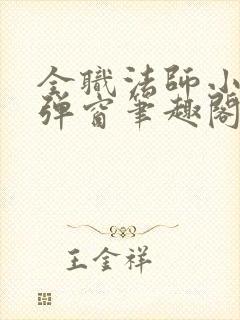 全職法師小
彈窗筆趣閣
王金祥